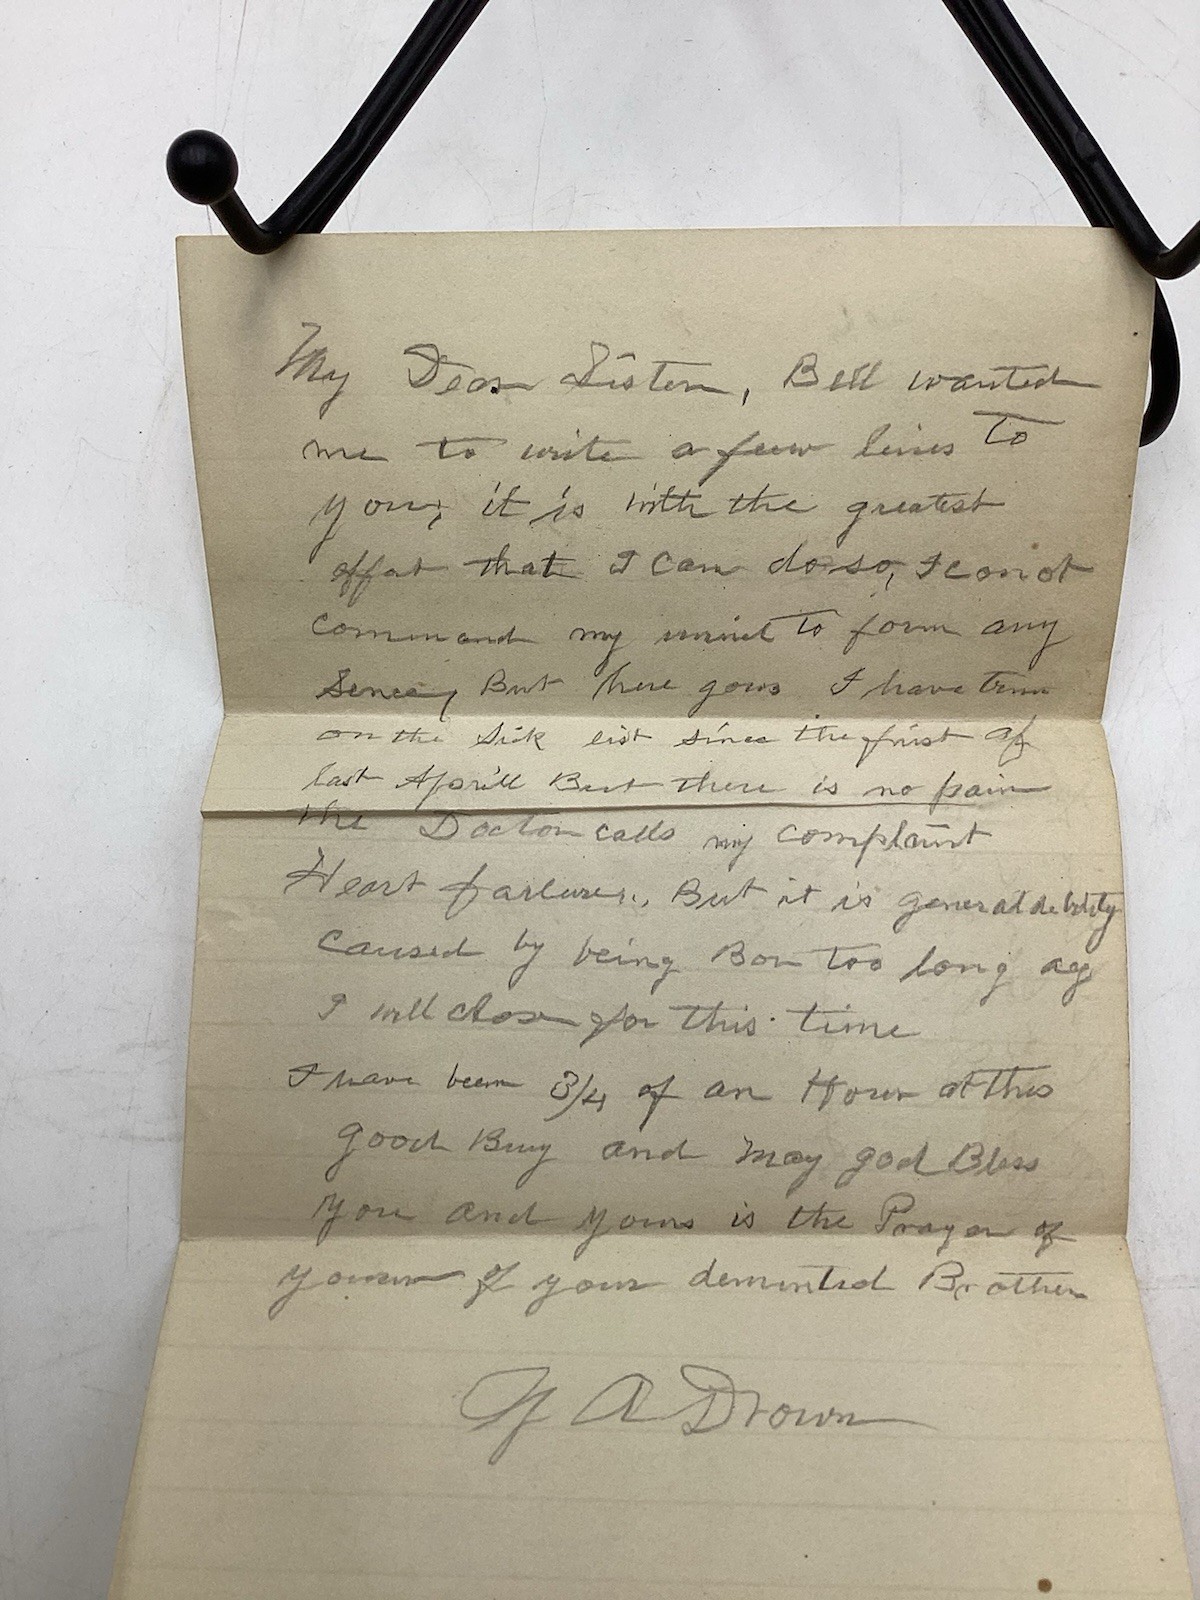 My Dear Sister, Bell wanted
me to write a few lines to
you, it is with the greatest
effat that I can do so, I conot
command my mind to form any
Sence, But here gows I have
on the Sick list since the frist of
last Aprill But there is no pain
the Doctor calls my complaint
Heart failure., But it is general debility
caused by being Bon too long ag
I will close for this time
I have been 3/4 of an Hour at this
good Buy and may god Bless
you and yours is the Prayer of
of your demented Brother
A Drown